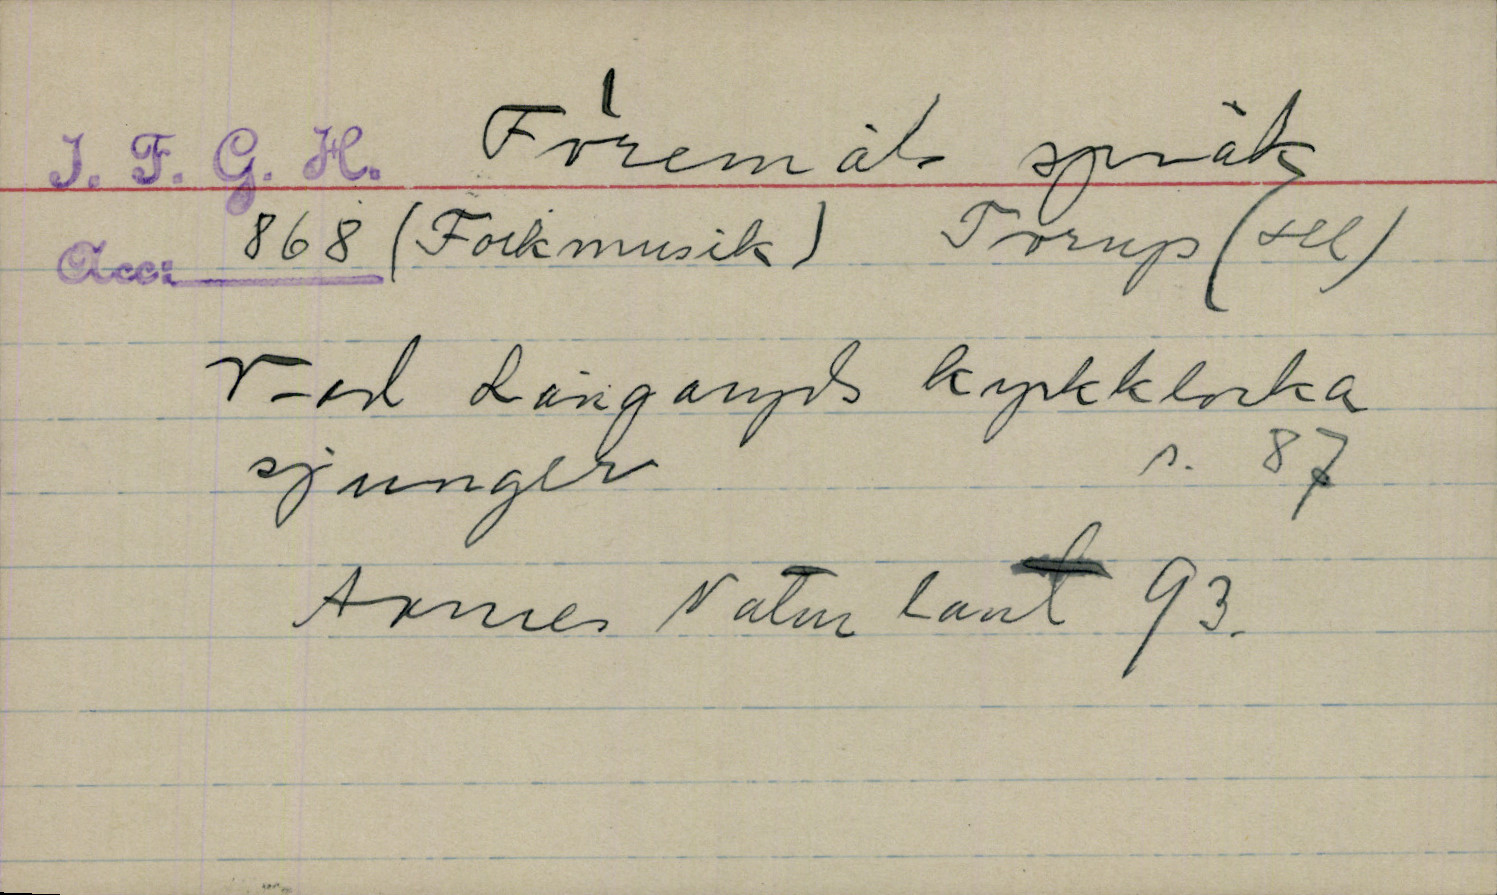 I. F. G. H. Föremåls språk
Acc: 868 (Folkmusik) Torup (Hll)
Vad Långaryds kyrkklocka
sjunger s. 87
Aarnes Natur laut 93.